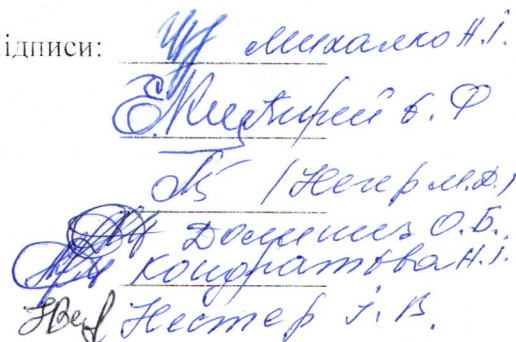 ідписи: Михалко Н.І.
Кирей Є. Ф
/ Негер М.Д. /
Доминич О.Б.
Кондратьва Н.І.
Нестер І. В.